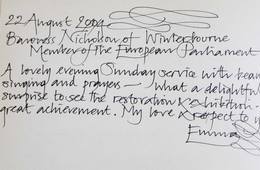 22 August 2009
Baroness Nicholson of Winterbourne
Member of the European Parliament
A lovely evening Sunday service with
singing and prayers — what a delightful
surprise to see the restoration & exhibition –
great achievement. My love & respect to
Emma